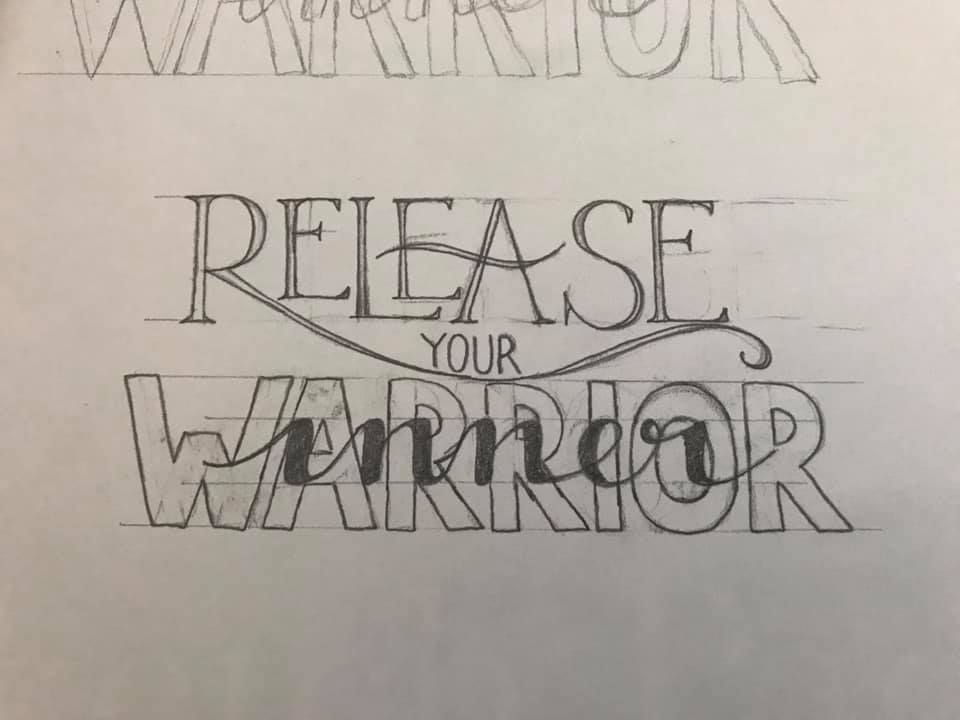 WARRIOR
RELEASE
YOUR
inner
WARRIOR